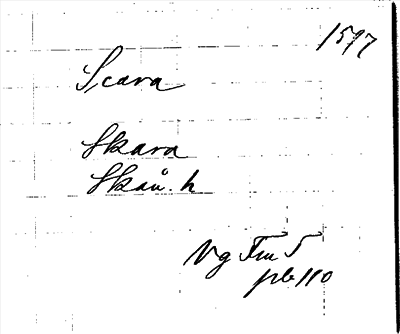 1597
Scara
Skara
Skån. h
Vg Fru 5
pb 110